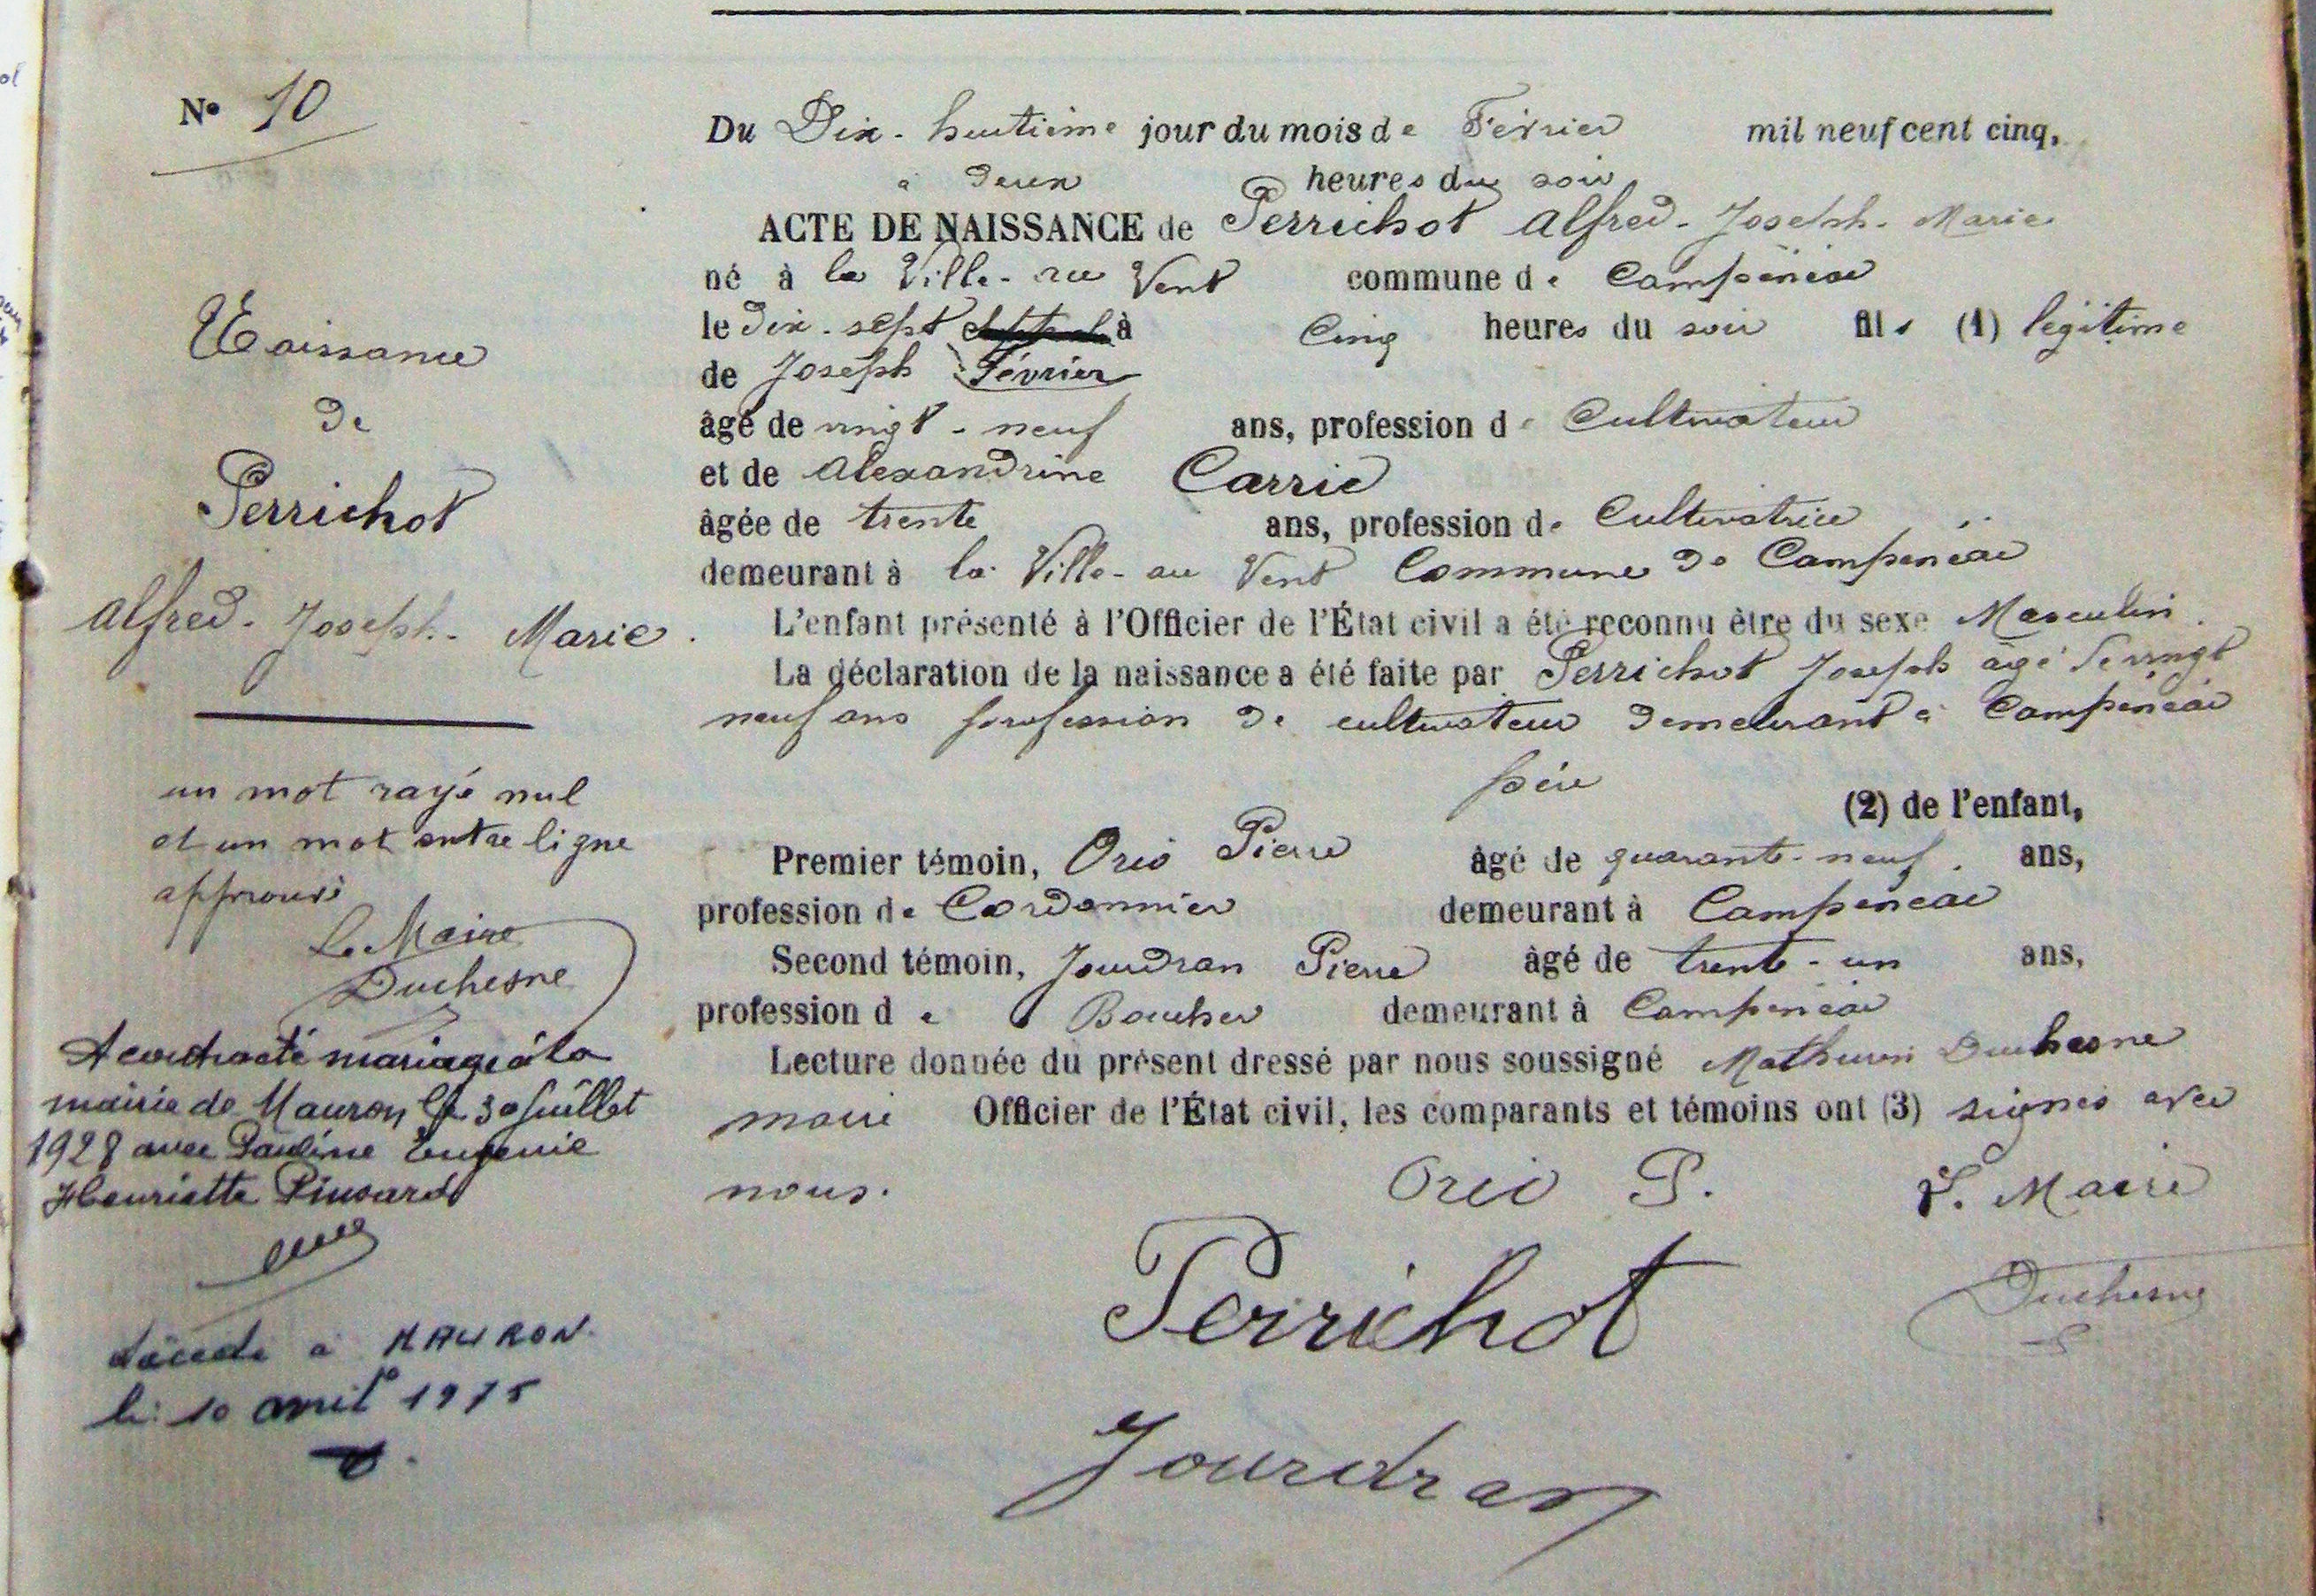 N° 10
Naissance
de
Perrichot
Alfred-Joseph-Marie.
un mot rayé nul
et un mot entre ligne
approuvé
Le Maire
Duchesne
A contracté mariage à la
mairie de Mauron le 30 Juillet
1928 avec Pauline Eugenie
Henriette Pinsard
décédé à MAURON
le 10 avril 1975
Du Dix-huitième jour du mois de Février mil neuf cent cinq,
à deux heures du soir
ACTE DE NAISSANCE de Perrichot Alfred-Joseph-Marie
né à la Ville-au Vent commune de Campénéac
le dix-sept à Cinq heures du soir fils (1) légitime
de Joseph Février
âgé de vingt-neuf ans, profession de Cultivateur
et de Alexandrine Carric
âgée de trente ans, profession de Cultivatrice
demeurant à la Ville-au Vent Commune de Campénéac
L'enfant présenté à l'Officier de l'État civil a été reconnu être du sexe Masculin.
La déclaration de la naissance a été faite par Perrichot Joseph âgé de vingt
neuf ans profession de cultivateur demeurant à Campénéac
père
(2) de l'enfant,
Premier témoin, Orio Pierre âgé de quarante-neuf. ans,
profession de Cordonnier demeurant à Campénéac
Second témoin, Jourdran Pierre âgé de trente-un ans,
profession de Boucher demeurant à Campénéac
Lecture donnée du présent dressé par nous soussigné Mathurin Duchesne
maire Officier de l'État civil, les comparants et témoins ont (3) signés avec
nous.
Orio P.
L. Maire
Perrichot
Duchesne
Jourdran